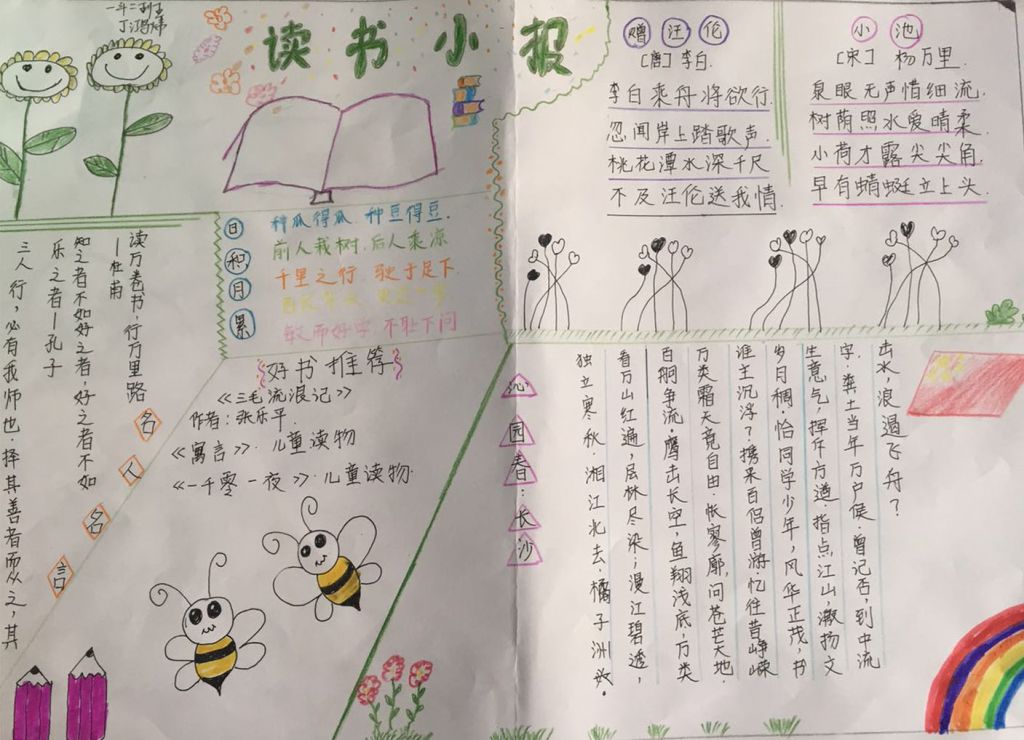 一年二班
丁鸿炜
读书小报
赠汪伦
[唐]李白.
李白乘舟将欲行.
忽闻岸上踏歌声.
桃花潭水深千尺
不及汪伦送我情.
小池
[宋] 杨万里.
泉眼无声惜细流.
树荫照水爱晴柔.
小荷才露尖尖角.
早有蜻蜓立上头.
日积月累
种瓜得瓜 种豆得豆.
前人栽树.后人乘凉
千里之行.驶于足下
敏而好学.不耻下问
名人名言
读万卷书.行万里路
—杜甫
知之者不如好之者,好之者不如
乐之者—孔子
三人行,必有我师也.择其善者而从之,其
好书推荐
《三毛流浪记》
作者:张乐平.
《寓言》.儿童读物
《一千零一夜》.儿童读物.
沁园春:长沙
独立寒秋.湘江北去.橘子洲头.
看万山红遍,层林尽染;漫江碧透,
百舸争流.鹰击长空,鱼翔浅底,万类
万类霜天竞自由.怅寥廓,问苍茫大地.
谁主沉浮?携来百侣曾游.忆往昔峥嵘
岁月稠.恰同学少年,风华正茂,书
生意气,挥斥方遒.指点江山,激扬文
字.粪土当年万户侯.曾记否,到中流
击水,浪遏飞舟?